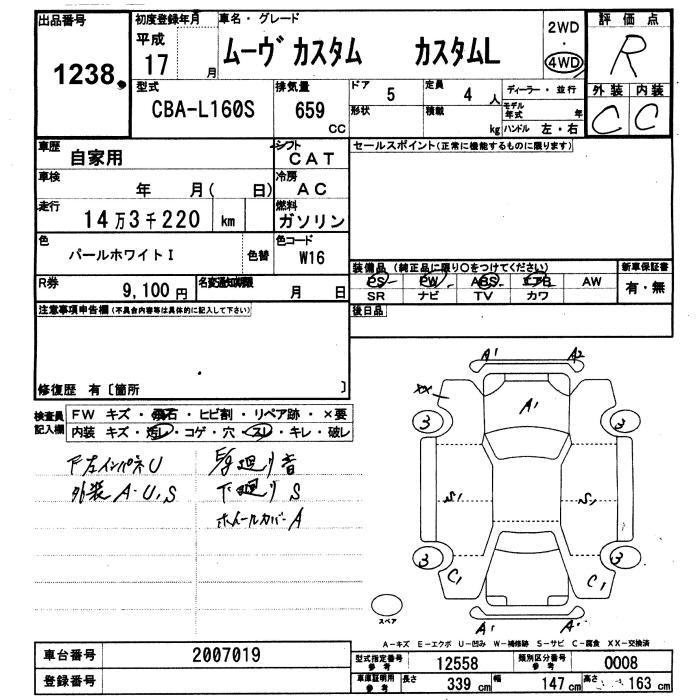 出品番号 初度登録年月 車名・グレード 2WD 評価点
1238 平成 17 月 ムーヴ カスタム カスタムL ・ 4WD R
型式 排気量 ドア 定員 ディーラー・並行 外装 内装
CBA-L160S 659 CC 5 4 人 モデル年式 年 C C
形状 積載 kg ハンドル 左・右
車歴 自家用 シフト CAT セールスポイント(正常に機能するものに限ります)
車検 年 月( 日) 冷房 AC
走行 14万3千220 km 燃料 ガソリン
色 パールホワイトI 色替 色コード W16
装備品(純正品に限り○をつけてください) 新車保証書
R券 9,100円 名変通知期限 月 日 PS PW ABS エアB AW 有・無
SR ナビ TV カワ
注意事項申告欄(不具合内容等は具体的に記入して下さい) 後日品
修復歴 有〔箇所 〕
検査員記入欄 FW キズ・飛石・ヒビ割・リペア跡・×要
内装 キズ・汚レ・コゲ・穴・スレ・キレ・破レ
下左インパネU
外装A・U,S 下廻りS
ホイールカバーA
A1 A2
XX
A1
3 3
S1 S1
3 3
C1 C1
スペア A1 A1
A-キズ E-エクボ U-凹み W-補修跡 S-サビ C-腐食 XX-交換済
車台番号 2007019 型式指定番号 参考 12558 類別区分番号 参考 0008
登録番号 車庫証明用 参考 長さ 339 cm 幅 147 cm 高さ 163 cm